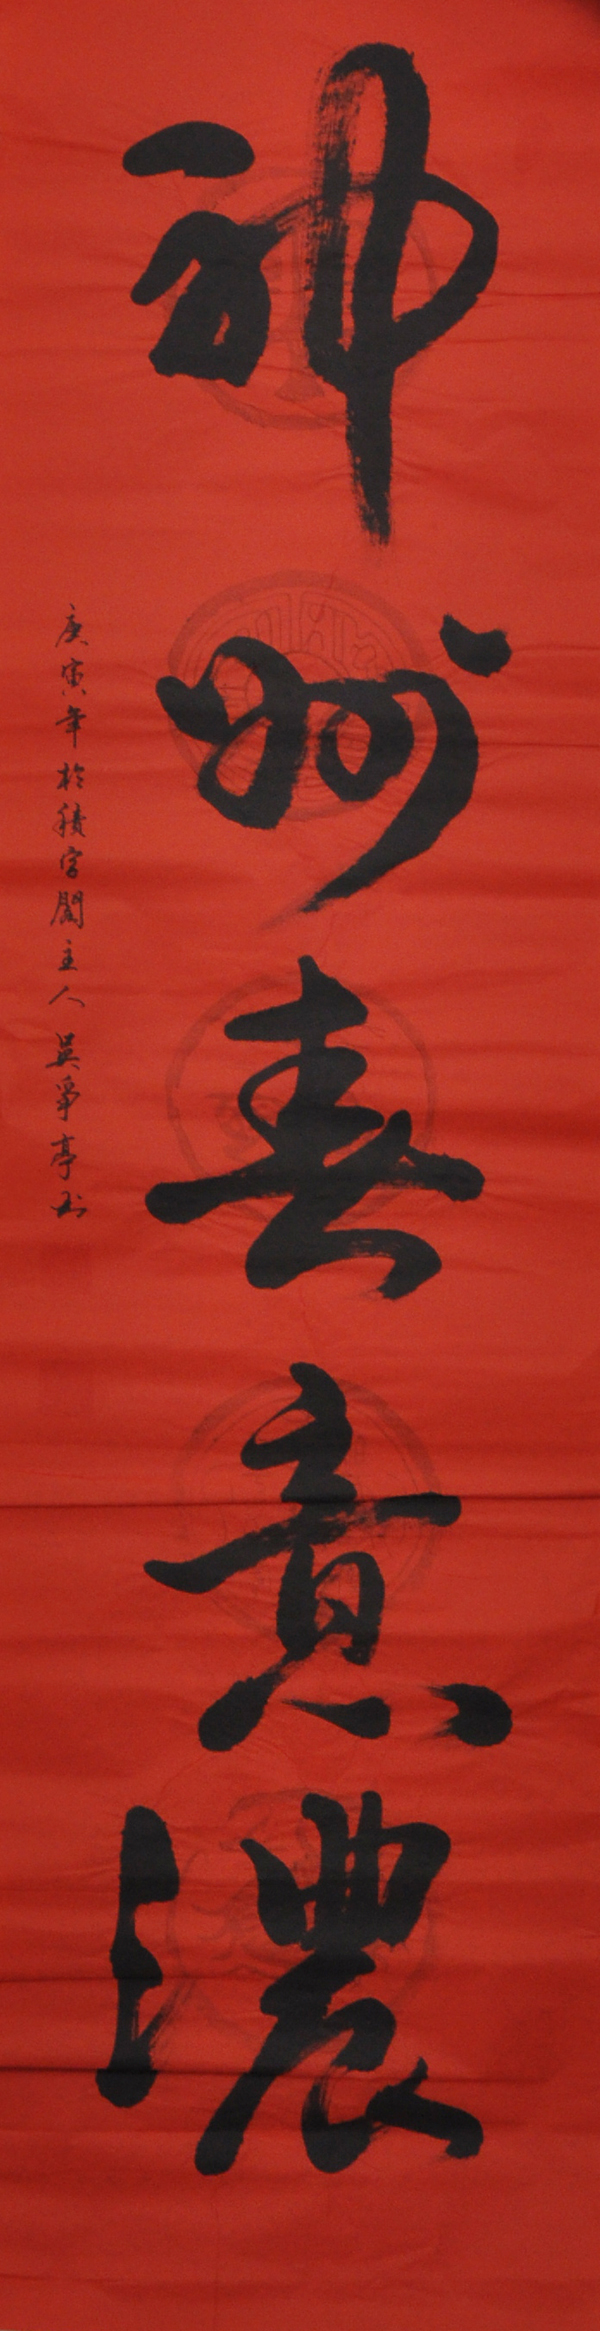 神州春意濃
庚寅年於積字閣主人 吳爭亭书